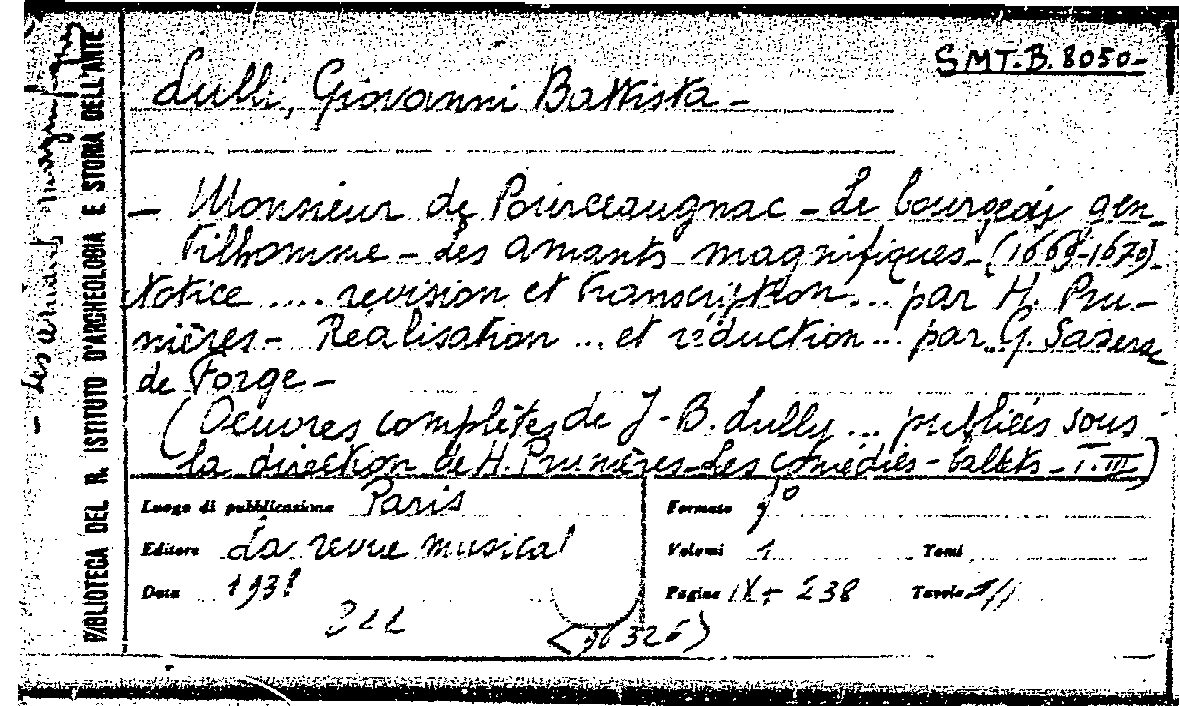 SMT.B. 8050-
Lulli, Giovanni Battista -
- Monsieur de Pourceaugnac - Le bourgeois gen-
tilhomme - Les amants magnifiques - (1669-1670).
Notice .... revision et transcription ... par H. Pru-
nières - Réalisation ... et réduction ... par G. Sazerac
de Forge -
(Oeuvres complètes de J-B. Lully ... publiées sous
la direction de H. Prunières - Les comédies - ballets - T. III)
Luogo di pubblicazione Paris
Formato f°
Editore La revue musical
Volumi 1 Tomi
Data 1938
Pagine IX + 238 Tavole
(96326)
BIBLIOTECA DEL R. ISTITUTO D'ARCHEOLOGIA E STORIA DELL'ARTE
- Les amants magnifiques